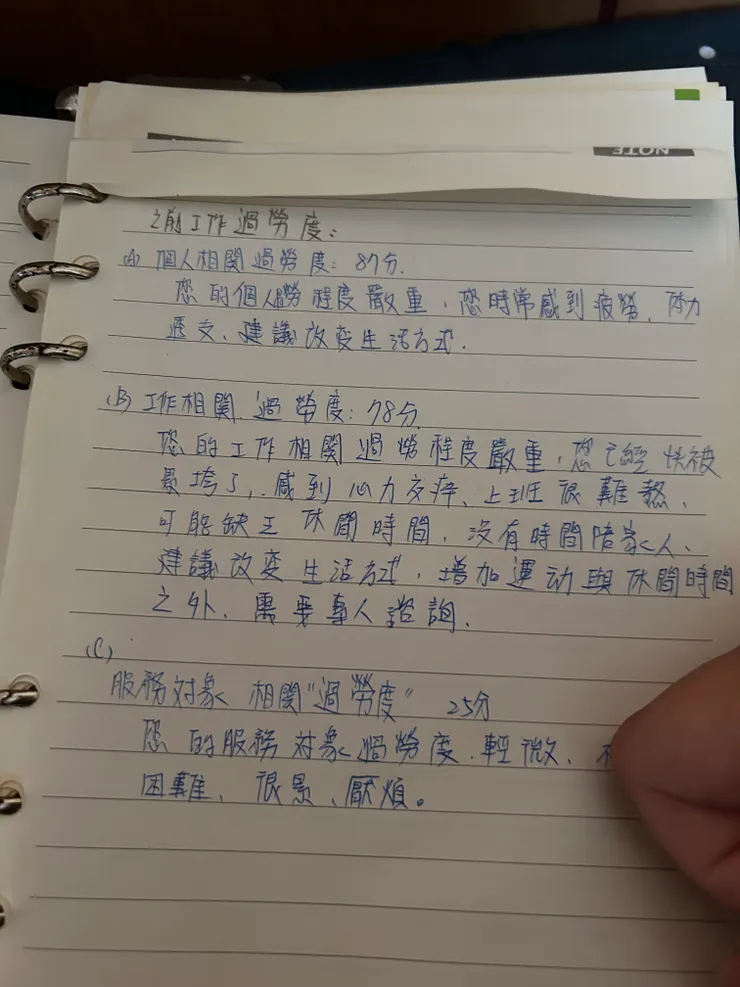 NOTE
之前工作過勞度:
(A) 個人相関過勞度: 87分.
您的個人勞程度嚴重,您時常感到疲勞、体力
透支、建議改变生活方式.
(B) 工作相関 過勞度: 78分.
您的工作相関過勞程度嚴重,您已經快被
累垮了,感到心力交瘁、上班很難熬、
可能缺乏休閒時間,沒有時間陪家人、
建議改变生活方式,增加運动與休閒時間
之外、需要專人諮詢.
(C)
服務対象 相関"過勞度" 25分
您的服務対象過勞度.輕微、
困難、很累、厭煩。